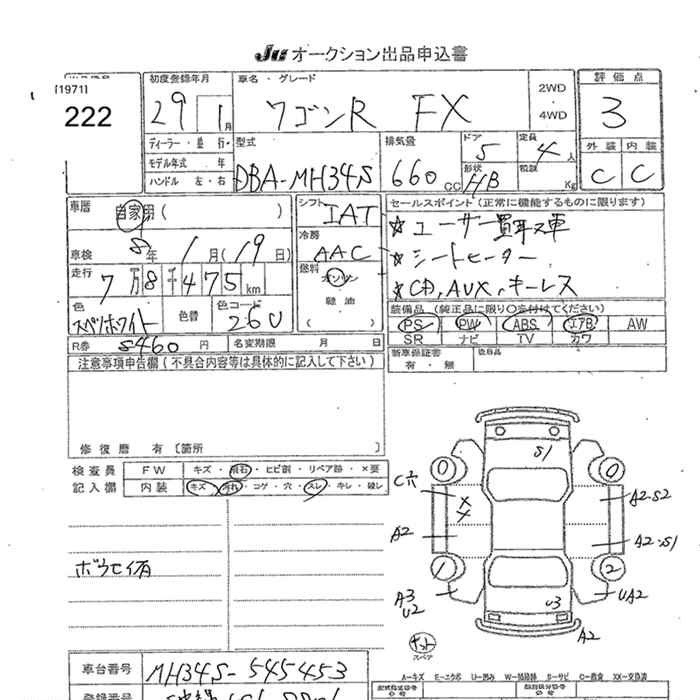 Ju オークション出品申込書
[1971]
222
初度登録年月
29 1月
車名・グレード
ワゴンR FX
2WD
・
4WD
評価点
3
外装 内装
C C
ディーラー・並行
モデル年式 年
ハンドル 左・右
型式
DBA-MH34S
排気量
660 CC
ドア
5
定員
4人
形状
HB
積載
Kg
車歴
自家用( )
シフト
IAT
セールスポイント(正常に機能するものに限ります)
☆ユーザー買取車
☆シートヒーター
☆CD, AUX, キーレス
車検
8年 1月(19日)
冷房
AAC
走行
7万8千475km
燃料
ガソリン
軽油
( )
色
スペリホワイト
色替
色コード
26U
装備品(純正品に限り○を付けてください)
PS PW ABS エアB AW
SR ナビ TV カワ
R券 8460円
名変期限 月 日
新車保証書
有・無
注意事項申告欄(不具合内容等は具体的に記入して下さい)
修復歴 有〔箇所 〕
検査員
記入欄
FW キズ・飛石・ヒビ割・リペア跡・×要
内装 キズ・汚れ・コゲ・穴・スレ・キレ・破レ
ボウセイ有
S1
0 0
C穴
XX
A2-S2
A2
A2-S1
1 2
A3
U2
U3
UA2
A2
スペア
A-キズ E-エクボ U-凹み W-補修跡 S-サビ C-腐食 XX-交換済
車台番号
MH34S-545453
登録番号